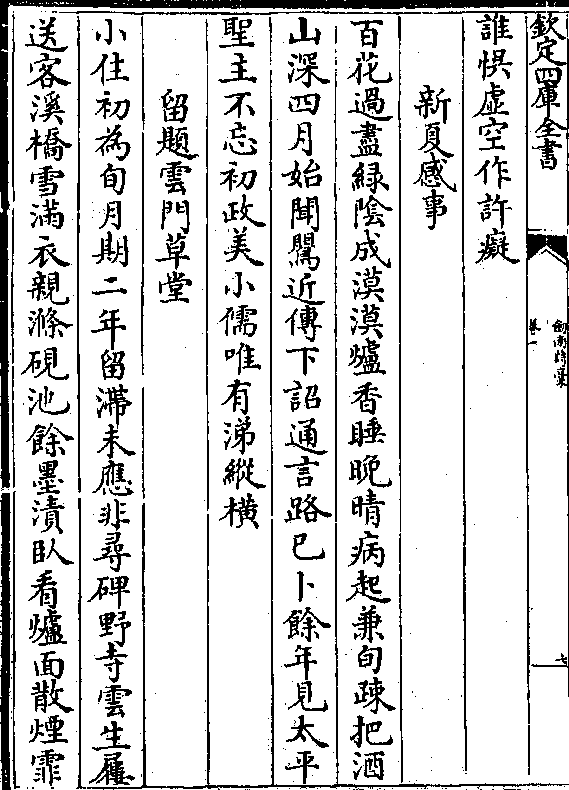 欽定四庫全書
劍南詩稾
卷一
七
誰惧虚空作許癡
新夏感事
百花過盡緑陰成漠漠爐香睡晚晴病起兼旬踈把酒
山深四月始聞鶯近傳下詔通言路已卜餘年見太平
聖主不忘初政美小儒唯有涕縱横
留題雲門草堂
小住初為旬月期二年留滯未應非尋碑野寺雲生屨
送客溪橋雪滿衣親滌硯池餘墨漬臥看爐面散煙霏